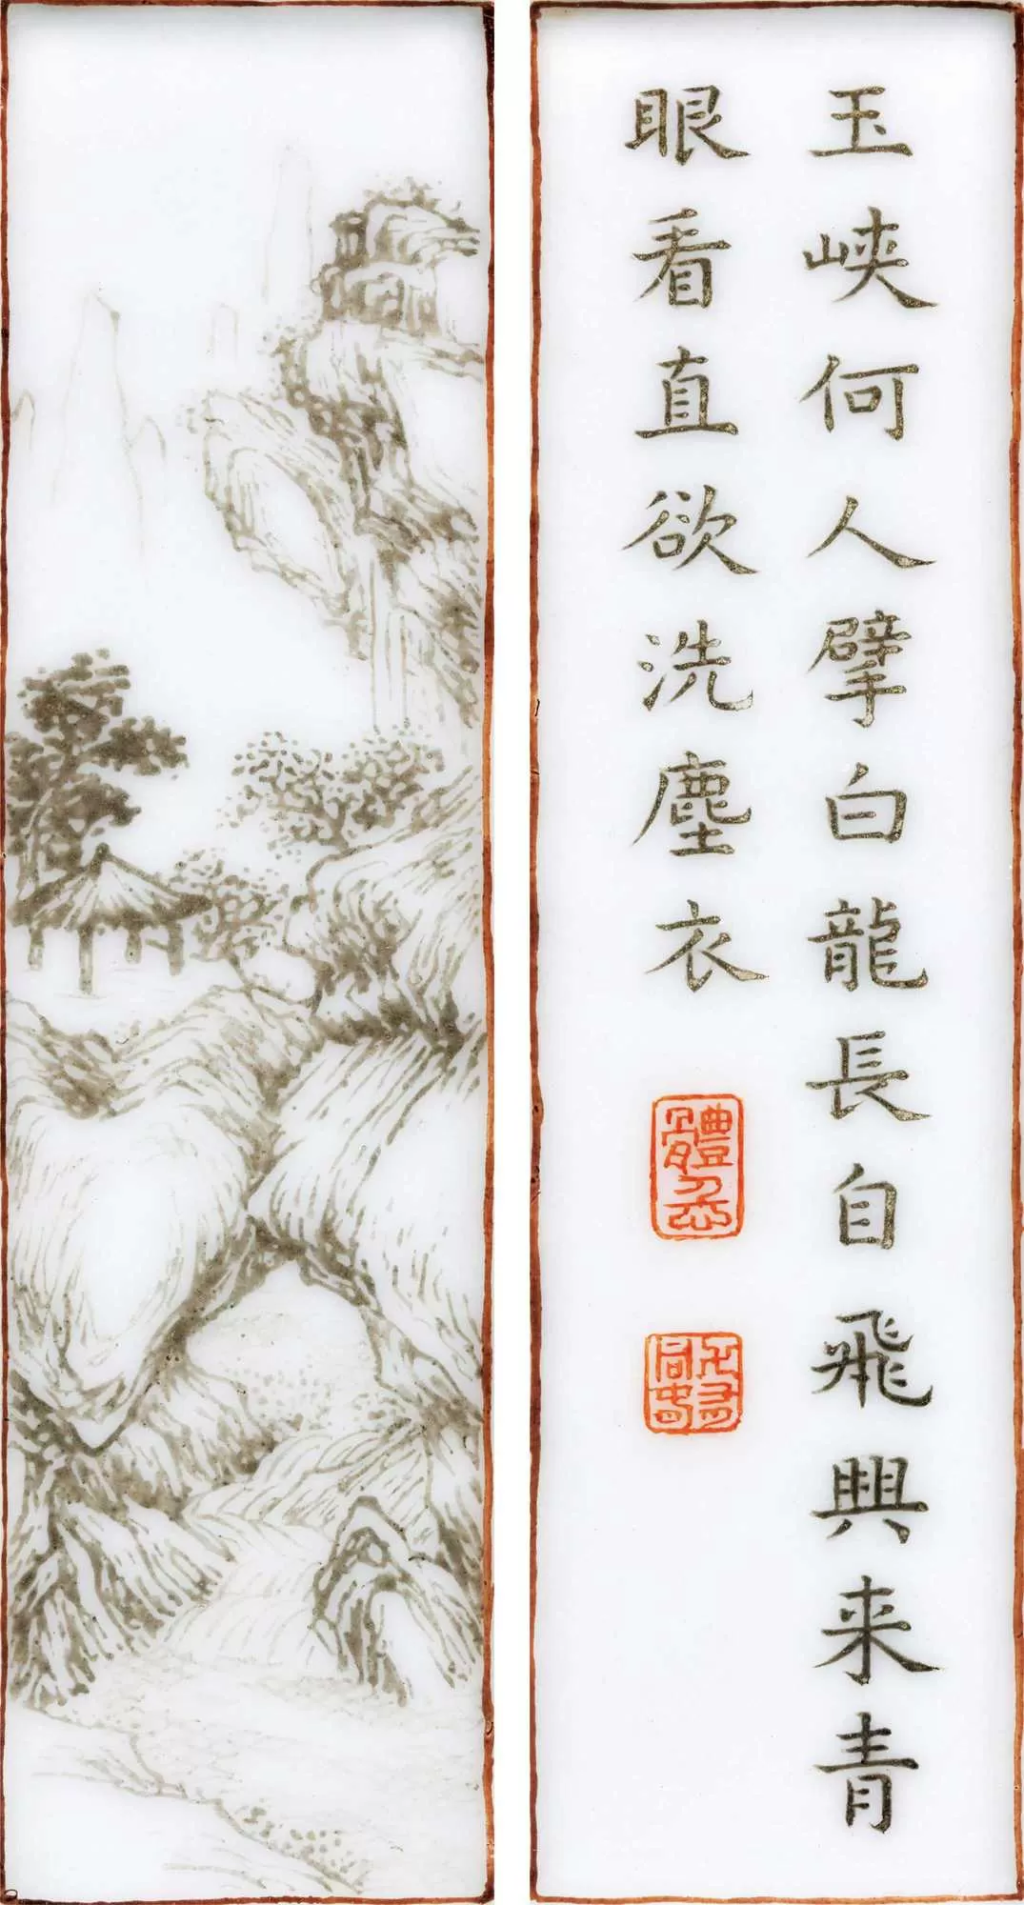 玉峡何人擘白龍長自飛興来青
眼看直欲洗塵衣
體元